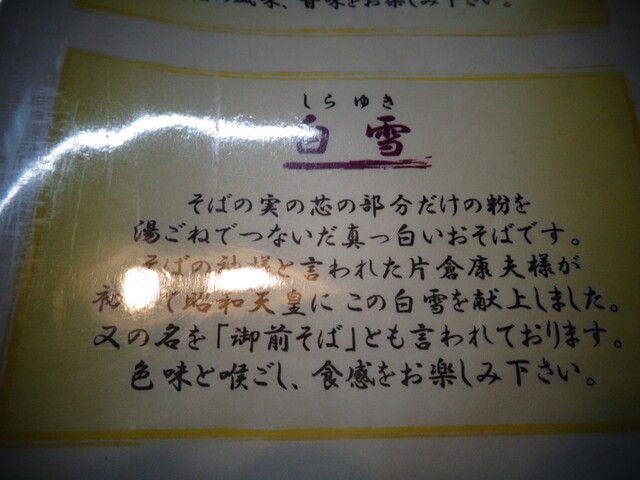 味をお楽しみ下さい。
しらゆき
白雪
そばの実の芯の部分だけの粉を
湯ごねでつないだ真っ白いおそばです。
そばの神様と言われた片倉康夫様が
て昭和天皇にこの白雪を献上しました。
又の名を「御前そば」とも言われております。
色味と喉ごし、食感をお楽しみ下さい。